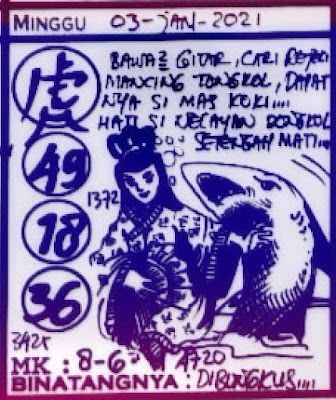 MINGGU 03-JAN-2021
BAWA2 GITAR, CARI REJEKI
MANCING TONGKOL, DAPAT
NYA SI MAS KOKI....
HATI SI NELAYAN DONGKOL
SETENGAH MATI....
虎
49
1372
18
36
MK : 8-6
BINATANGNYA : DIBUNGKUS....